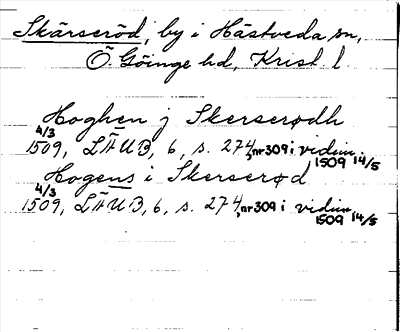 Skärseröd, by i Hästveda sn,
Ö. Göinge hd, Krist. l.
Hoghen j Skerserødh
4/3 1509, LÄUB, 6, s. 274, nr 309 i vidim. 1509 14/5
Hogens i Skerserød
4/3 1509, LÄUB, 6, s. 274, nr 309 i vidim. 1509 14/5